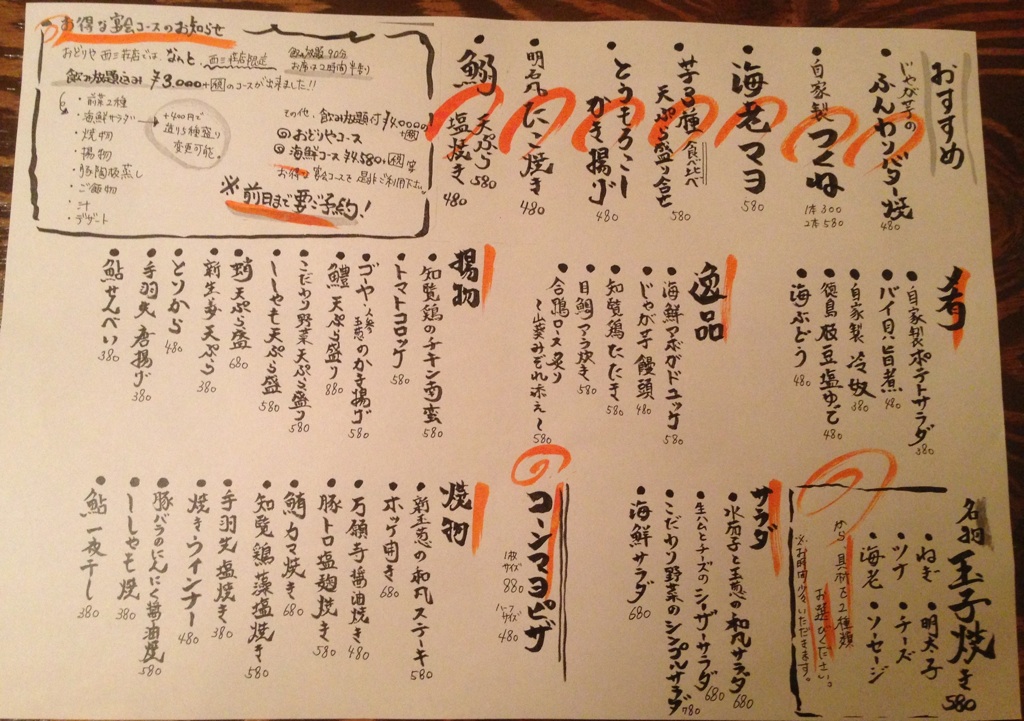 おすすめ
・じゃが芋のふんわりバター焼 480
・自家製つくね 1本300 2本580
・海老マヨ 580
・芋3種食べ比べ天ぷら盛り合せ 580
・とうもろこしかき揚げ 480
・明石だこ焼き 480
・鰯 天ぷら 580 塩焼き 480
お得な宴会コースのお知らせ
おどりや 西三荘店では、なんと、西三荘店限定
飲み放題90分
お席は2時間半制り
飲み放題込み ¥3,000+税のコースが出来ました!!
・前菜2種
・海鮮サラダ
・焼物
・揚物
・豚陶板蒸し
・ご飯物
・汁
・デザート
+400円で造り5種盛り変更可能。
その他、飲み放題付¥4,000+税の
おどりやコース
海鮮コース ¥4,580+税 等
お得な宴会コースを是非ご利用下さい。
※前日まで要ご予約!
肴
・自家製ポテトサラダ 380
・バイ貝旨煮 480
・自家製冷奴 380
・徳島枝豆塩ゆで 480
・海ぶどう 480
逸品
・海鮮アボガドユッケ 580
・じゃが芋饅頭 480
・知覧鶏たたき 580
・目鯛アラ炊き 580
・合鴨ロース炙り～山葵みぞれ添え～ 580
揚物
・知覧鶏のチキン南蛮 580
・トマトコロッケ 580
・ゴーヤ・人参・玉葱のかき揚げ 580
・鱧天ぷら盛り 880
・こだわり野菜天ぷら盛り 580
・ししゃも天ぷら盛 580
・蛸天ぷら盛 680
・新生姜天ぷら 380
・とりから 480
・手羽先唐揚げ 380
・鮎せんべい 380
名物 玉子焼き 580
・ねぎ ・明太子
・ツナ ・チーズ
・海老 ・ソーセージ
から具材を2種類お選びください。
※お時間少々いただきます。
サラダ
・水茄子と玉葱の和風サラダ 680
・生ハムとチーズのシーザーサラダ 680
・こだわり野菜のシンプルサラダ 780
・海鮮サラダ 680
コーンマヨピザ
1枚サイズ 880
ハーフサイズ 480
焼物
・新玉葱の和風ステーキ 580
・ホッケ開き 680
・万願寺醤油焼き 480
・豚トロ塩麹焼き 580
・鰤カマ焼き 680
・知覧鶏藻塩焼き 580
・手羽先塩焼き 380
・焼きウインナー 480
・豚バラのにんにく醤油焼 580
・ししゃも焼 380
・鮎一夜干し 380